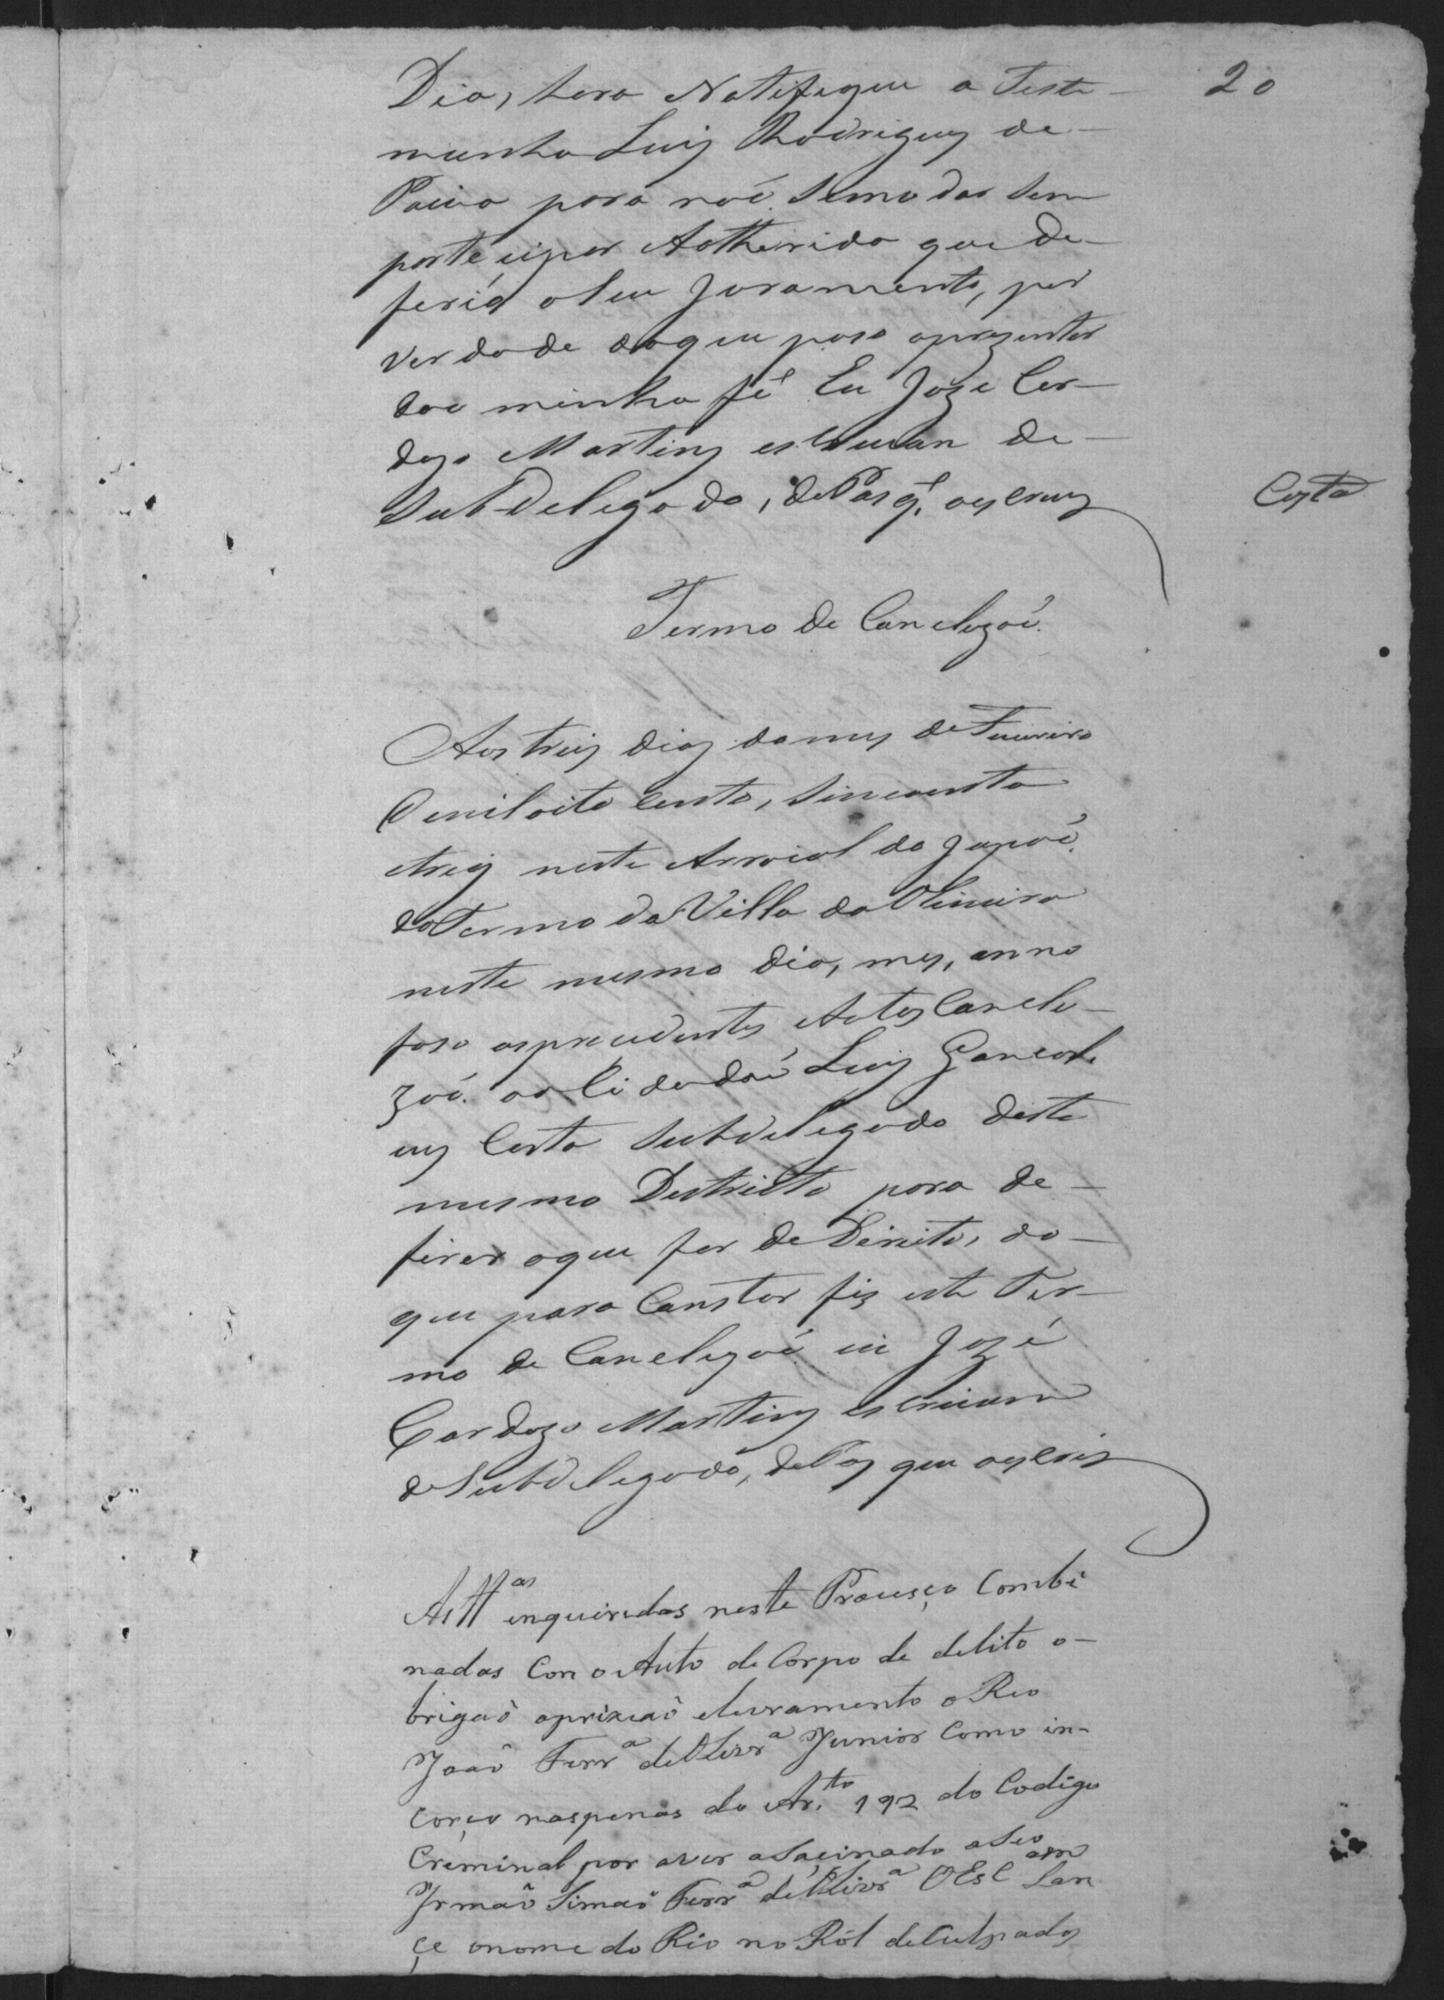 Dia, hora Notifiquei a Teste-
20
munha Luis Rodrigues de-
Paiva para naó semodar sem
parteicipar Aotherido que de-
feriá oseu Juramento, por
verdade doque poso aprezentar
doe minha fé Eu Joze Car-
dozo Martins escrivan de-
SubDelegado, dePas q. oescrevy
Costa
Termo de Conclozoé.
Aos treis dias domes de Fevreiro
demil oito Cento, sincoenta
etreis neste Arraial do Japaó.
doTermo da Villa da Oliveira
neste mesmo dia, mes, anno
faso osprecedentes Autos Conclo-
zoé. ao Cidadaó Luis Goncal
ves Costa Subdelegado deste
mesmo Destricto para de-
ferir oque for de Direito, do-
que para Constar fis este Ter-
mo de Conclozoé eu Jozé
Cardozo Martins escrivam
deSubdelegado, dePas que oescris
As tt.as enqueiridas neste Proceso Combi
nadas Con o Auto de Corpo de delito o-
brigaõ aprizaõ elivramento o Reo
Joaõ Ferr.a de Olivr.a Junior Como in-
corço naspenas do Ar.to 192 do Codigo
Creminal por aver asacinado aseo
Irmaõ Simaõ Ferr.a de Olivr.a O Esc.am Lan
çe onome do Rio no Ról deCulpados